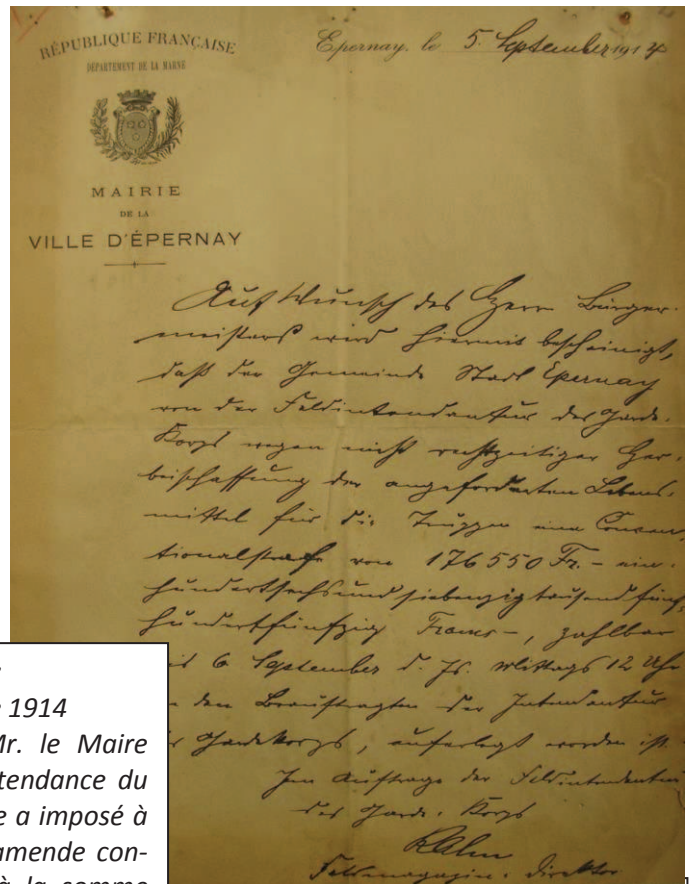 RÉPUBLIQUE FRANÇAISE
DÉPARTEMENT DE LA MARNE
MAIRIE
DE LA
VILLE D'ÉPERNAY
Epernay, le 5. September 1914
Auf Wunsch des Herrn Bürger-
meisters wird hiermit bescheinigt,
daß der Gemeinde Stadt Epernay
von der Feldintendantur des Garde-
Korps wegen nicht rechtzeitiger Her-
beischaffung der angeforderten Lebens-
mittel für die Truppen eine Conven-
tionalstrafe von 176550 Fr. - ein-
hundertsechsundsiebenzigtausend fünf-
hundertfünfzig Francs -, zahlbar
6 September d. Js. Mittags 12 Uhr
den Beauftragten der Intendantur
Gardekorps, auferlegt worden ist.
Im Auftrage der Feldintendantur
des Garde-Korps
Feldmagazin-Direktor
1914
Mr. le Maire
tendance du
e a imposé à
amende con-
à la somme